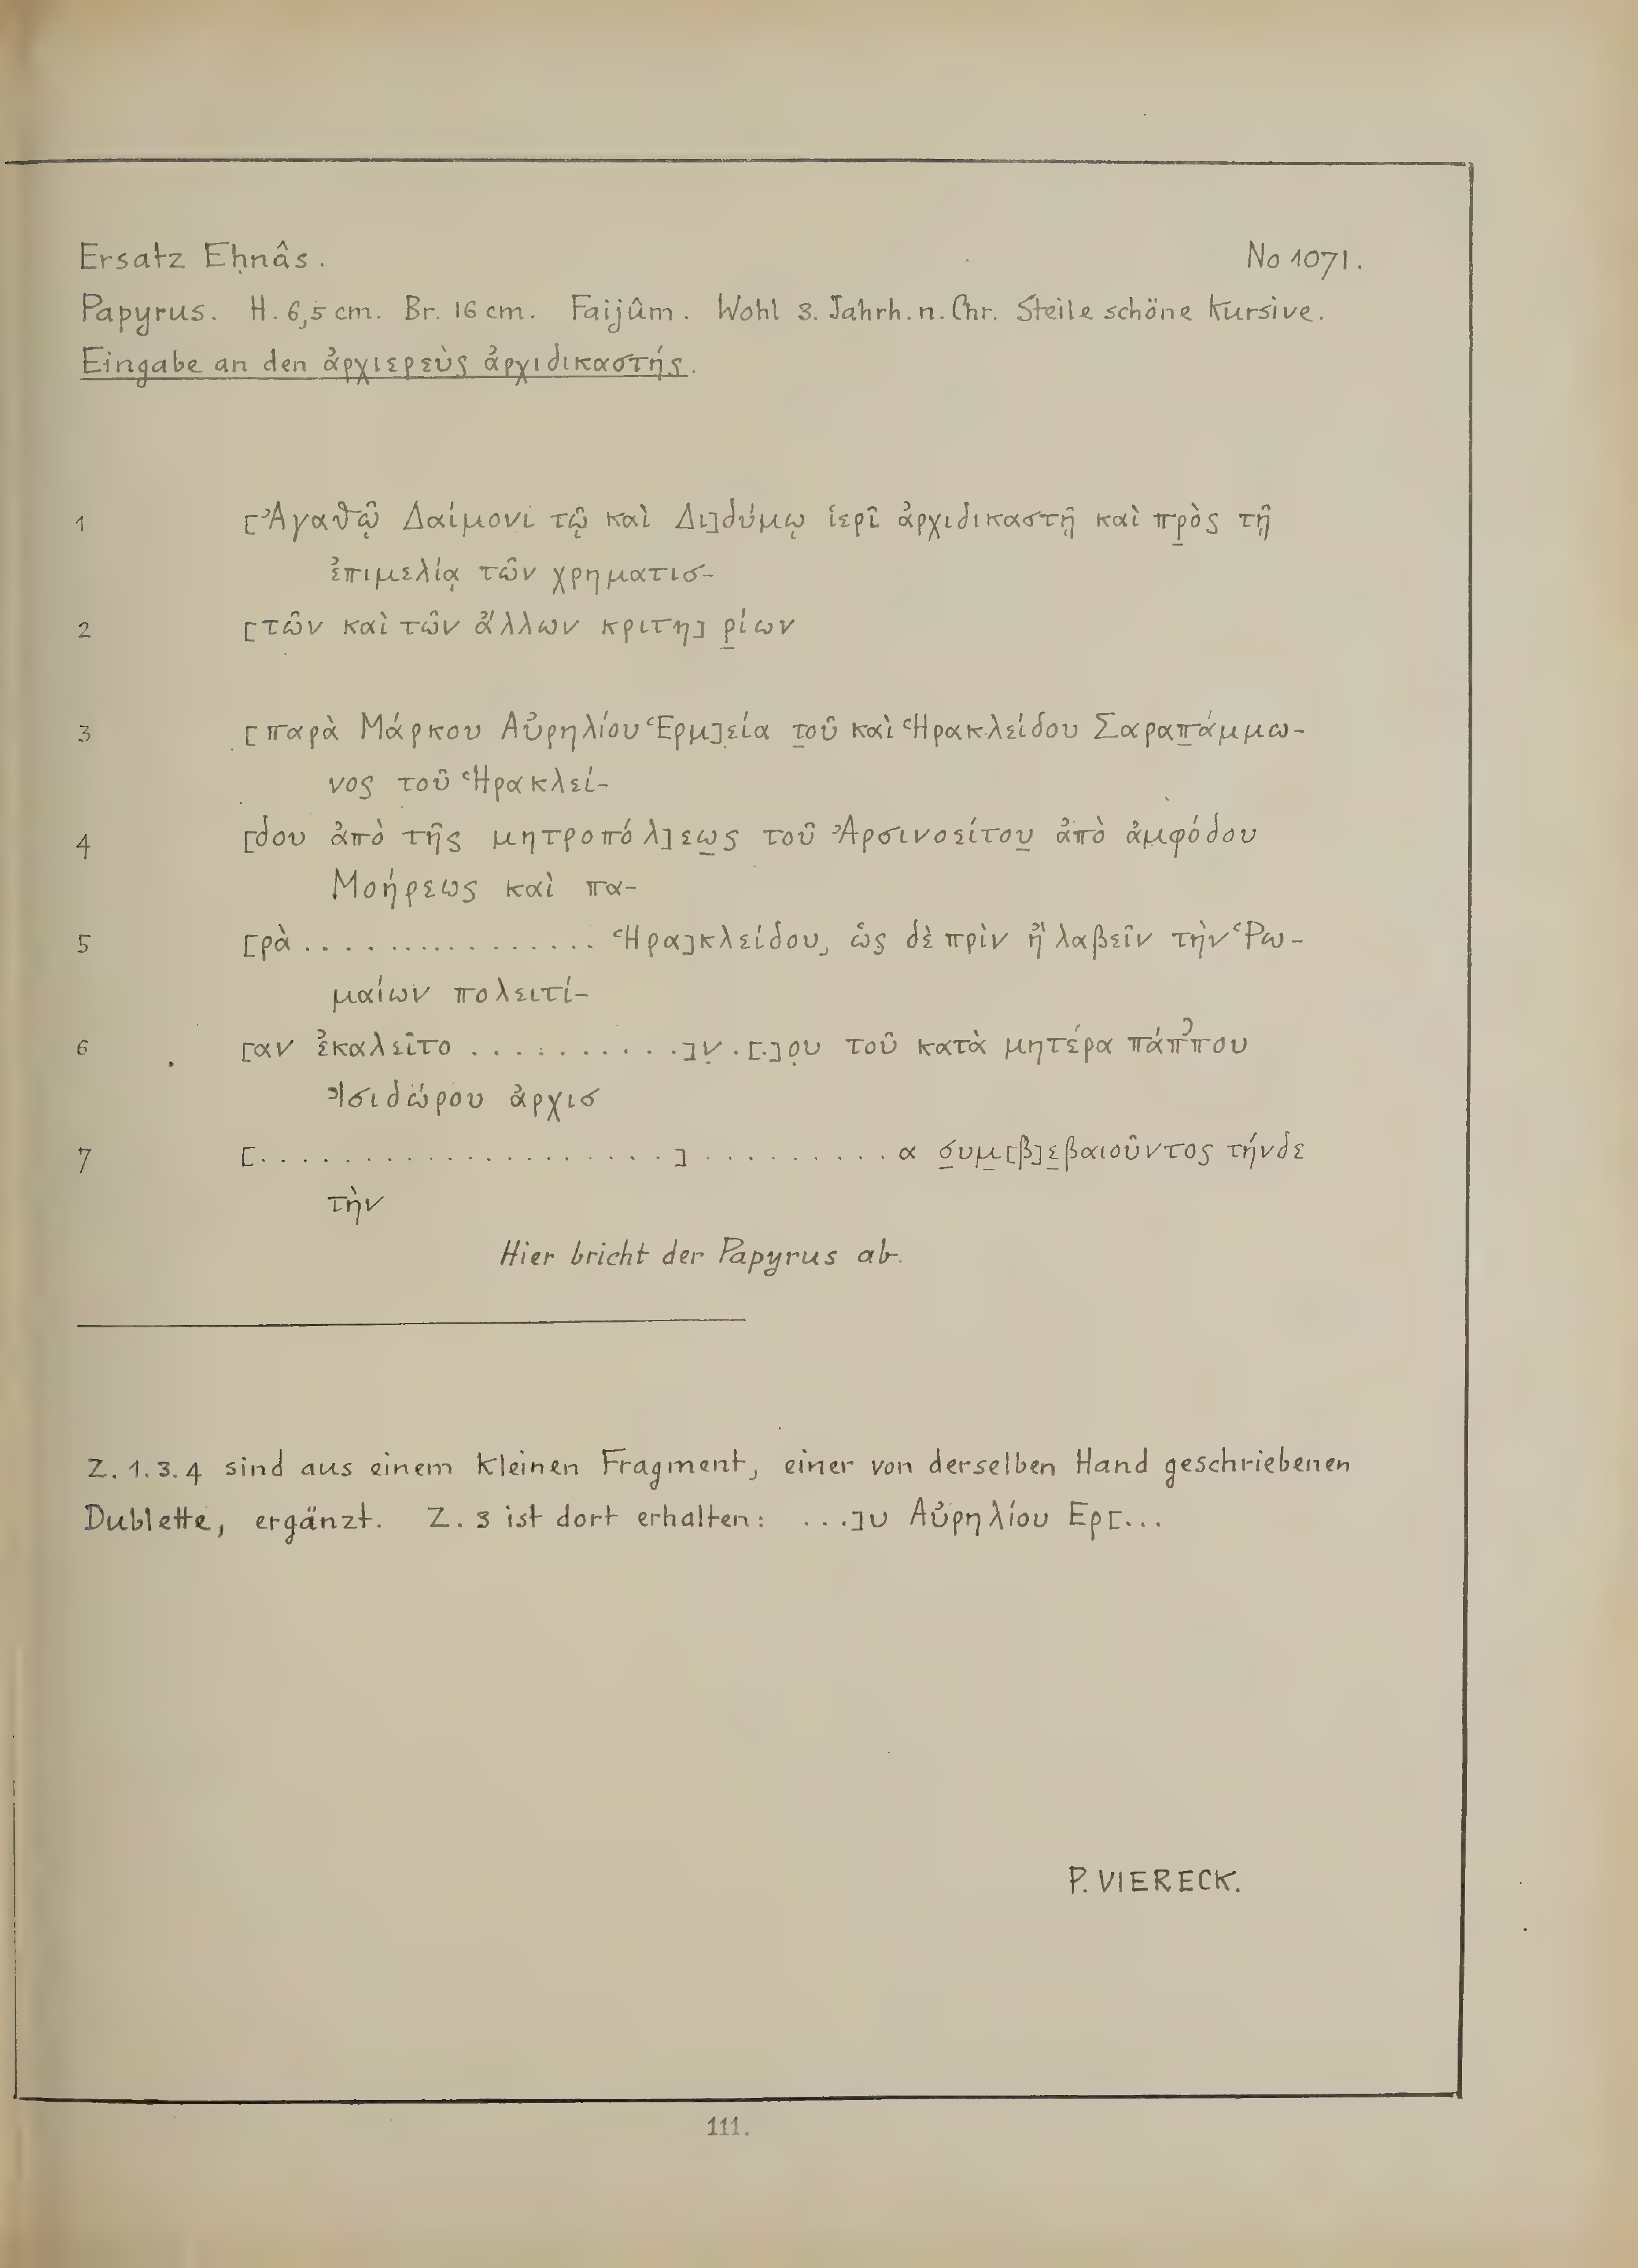 Ersatz Eḥnâs. No 1071.
Papyrus. H. 6,5 cm. Br. 16 cm. Faijûm. Wohl 3. Jahrh. n. Chr. Steile schöne Kursive.
Eingabe an den ἀρχιερεὺς ἀρχιδικαστής.
1 [Ἀγαθῷ Δαίμονι τῷ καὶ Δι]δύμῳ ἱερῖ ἀρχιδικαστῇ καὶ πρ̣ὸς τῇ
ἐπιμελίᾳ τῶν χρηματισ-
2 [τῶν καὶ τῶν ἄλλων κριτη]ρ̣ίων
3 [παρὰ Μάρκου Αὐρηλίου Ἑρμ]εία τ̣οῦ καὶ Ἡρακλείδου Σαραπ̣άμμω-
νος τοῦ Ἡρακλεί-
4 [δου ἀπὸ τῆς μητροπόλ]εω̣ς τοῦ Ἀρσινοείτου̣ ἀπὸ ἀμφόδου
Μοήρεως καὶ πα-
5 [ρὰ ............... Ἡρα]κλείδου, ὡς δὲ πρὶν ἢ λαβεῖν τὴν Ῥω-
μαίων πολειτί-
6 [αν ἐκαλεῖτο ..........]ν̣.[.]ο̣υ τοῦ κατὰ μητέρα πάπ᾽που
Ἰσιδώρου ἀρχισ
7 [....................] ......... α σ̣υμ̣[β]ε̣βαιοῦντος τήνδε
τὴν
Hier bricht der Papyrus ab.
Z. 1. 3. 4 sind aus einem kleinen Fragment, einer von derselben Hand geschriebenen
Dublette, ergänzt. Z. 3 ist dort erhalten: ...]υ Αὐρηλίου Ερ[...
P. VIERECK.
111.